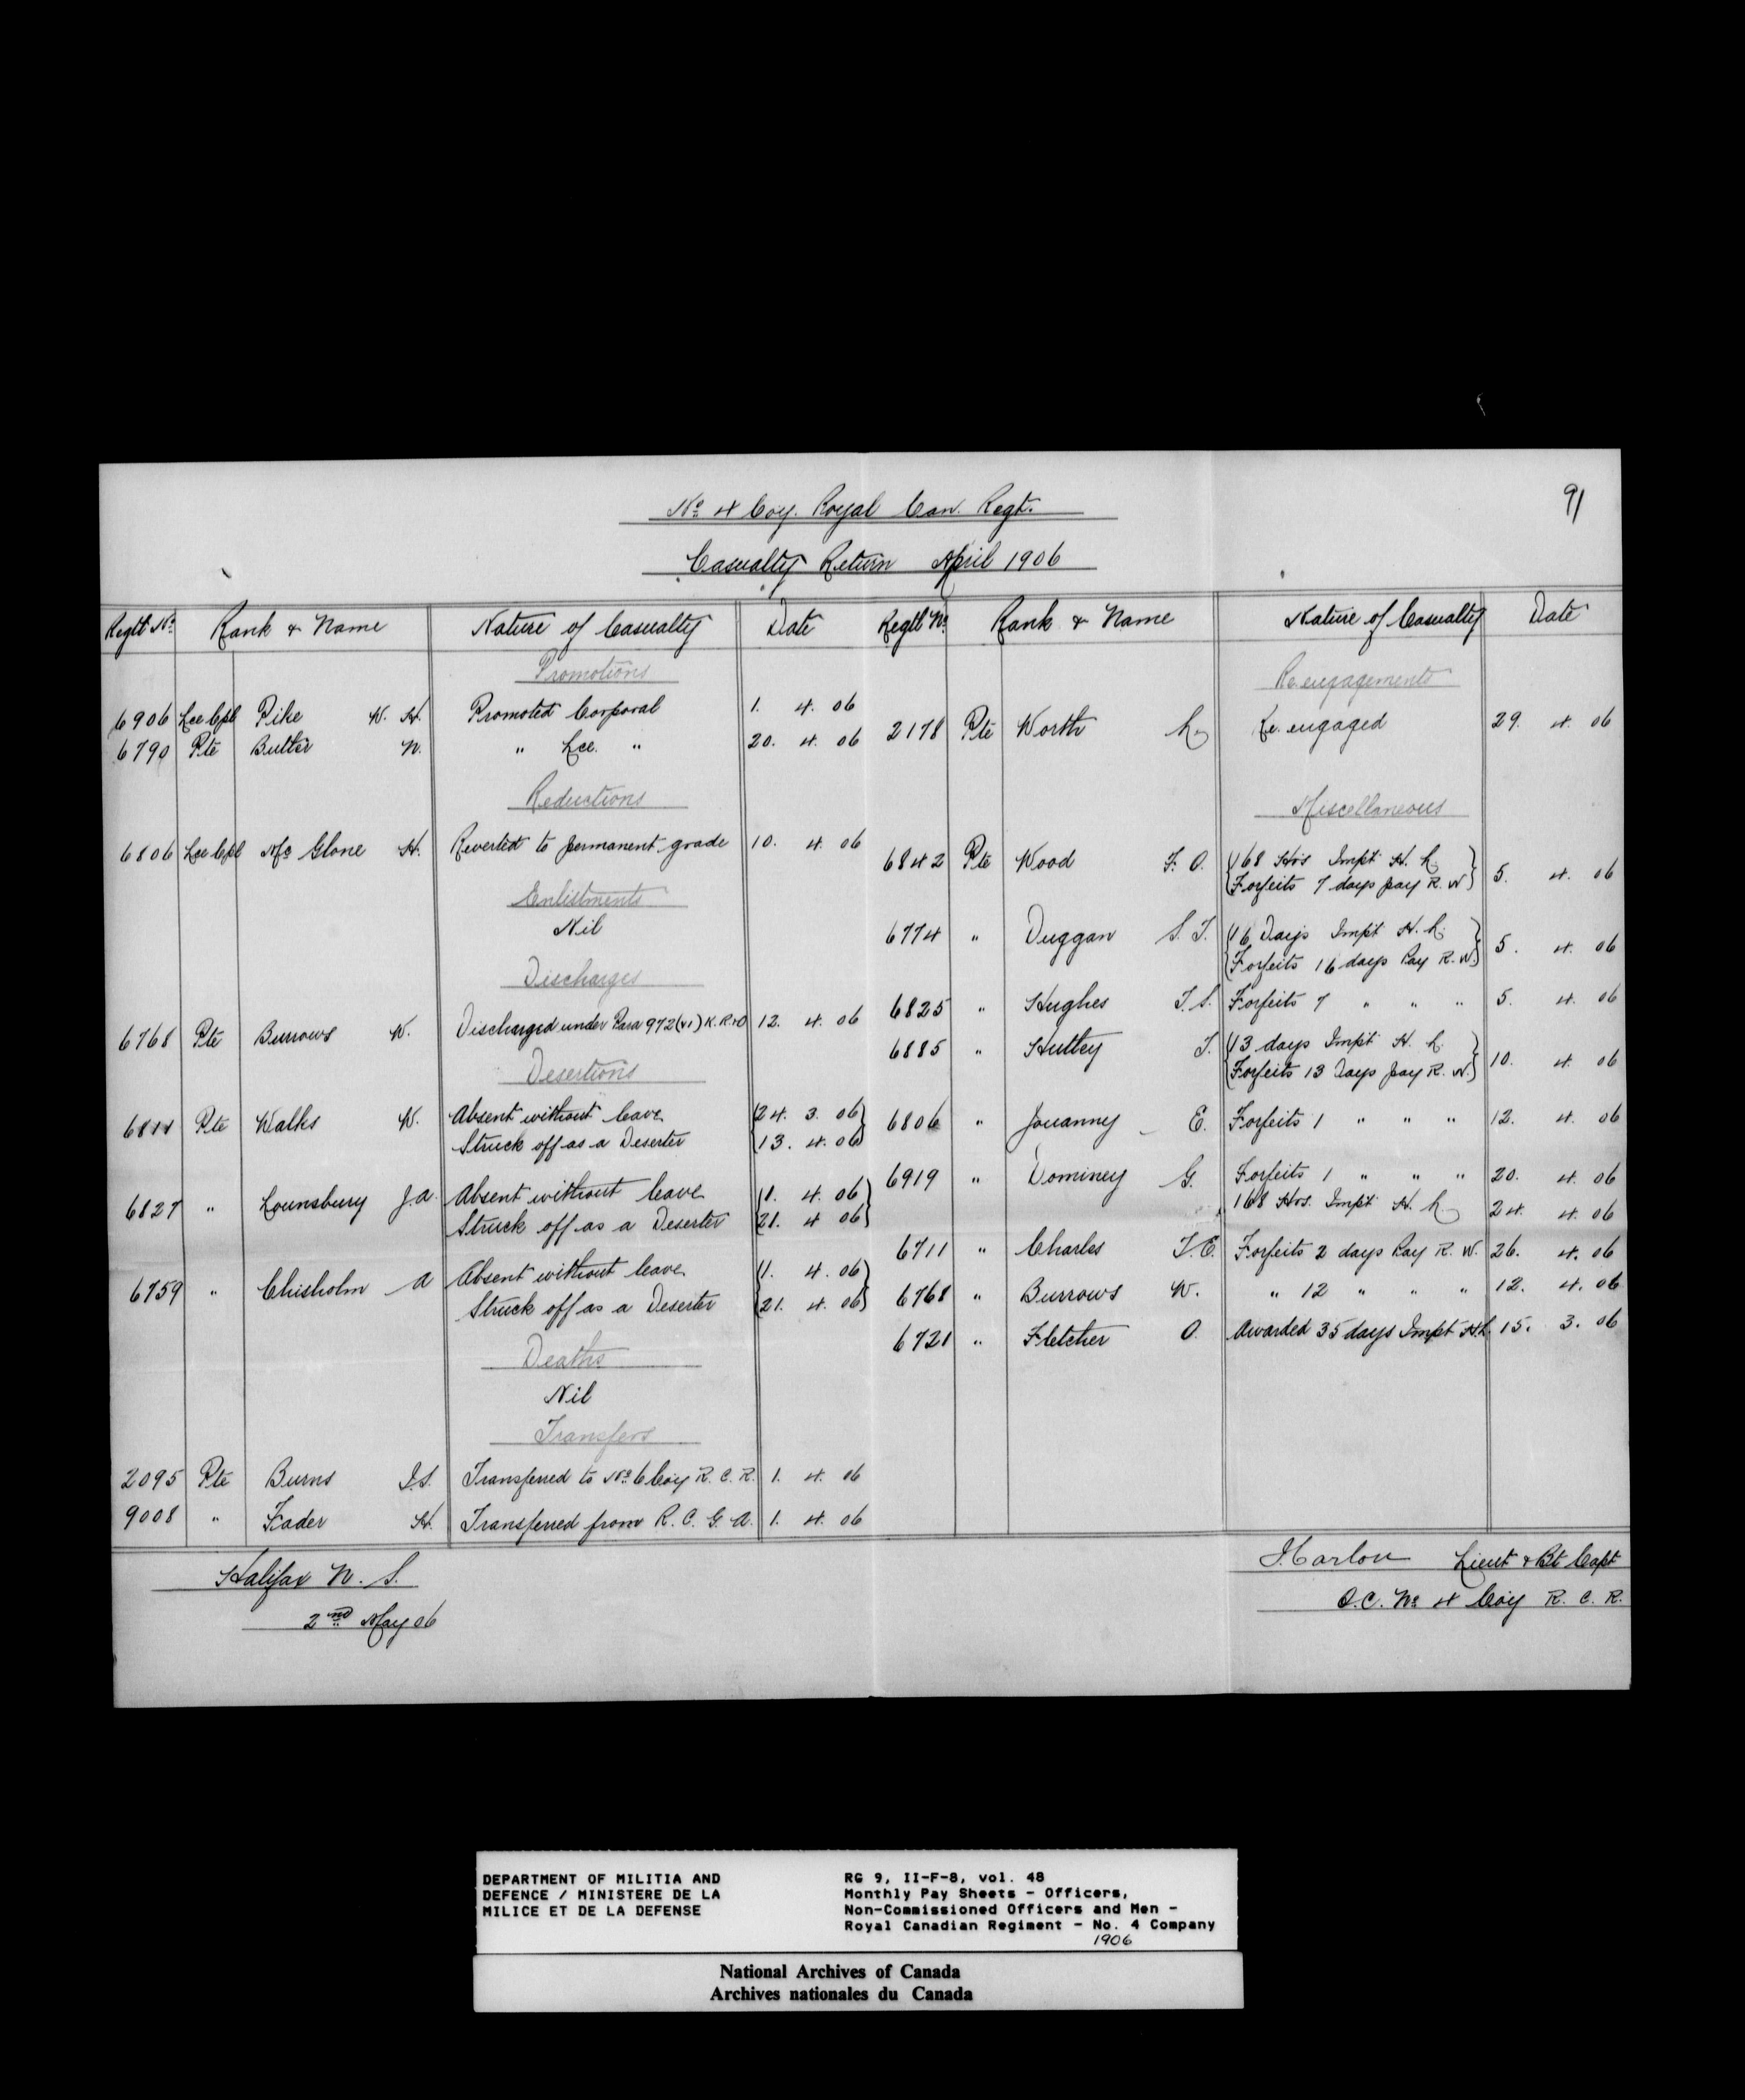 91
No 4 Coy. Royal Can. Regt.
Casualty Return April 1906
Regtl No Rank & Name Nature of Casualty Date
Promotions
6906 Lce Cpl Pike W. H. Promoted Corporal 1. 4. 06
6790 Pte Butler N. " Lce. " 20. 4. 06
Reductions
6806 Lce Cpl Mc Glone H. Reverted to permanent grade 10. 4. 06
Enlistments
Nil
Discharges
6768 Pte Burrows W. Discharged under Para 972 (VI) K.R.&O 12. 4. 06
Desertions
Pte Walks W. Absent without leave 24. 3. 06
Struck off as a Deserter 13. 4. 06
6827 " Lounsbury J.A. Absent without leave 1. 4. 06
Struck off as a Deserter 21. 4 06
6759 " Chisholm A Absent without leave 1. 4. 06
Struck off as a Deserter 21. 4. 06
Deaths
Nil
Transfers
2095 Pte Burns Transferred to No 6 Coy R. C. R. 1. 4. 06
9008 " Fader H. Transferred from R. C. G. A. 1. 4. 06
Regtl No Rank & Name Nature of Casualty Date
Re engagements
2178 Pte Worth C. Re. engaged 29. 4. 06
Miscellaneous
6842 Pte Wood F. O. 168 Hrs Impt H. L.
Forfeits 7 days pay R. W. 5. 4. 06
6774 " Duggan S. T. 16 Days Impt H. L.
Forfeits 16 days Pay R. W. 5. 4. 06
6825 " Hughes T. S. Forfeits 7 " " " 5. 4. 06
6885 " Hutley T. 13 days Impt H. L.
Forfeits 13 Days pay R. W. 10. 4. 06
6806 " Jouanny E. Forfeits 1 " " " 12. 4. 06
6919 " Dominey G. Forfeits 1 " " " 20. 4. 06
168 Hrs. Impt H. L. 24. 4. 06
6711 " Charles T. E. Forfeits 2 days Pay R. W. 26. 4. 06
6768 " Burrows W. " 12 " " " 12. 4. 06
6721 " Fletcher O. Awarded 35 days Impt H.L. 15. 3. 06
Halifax N. S.
2nd May 06
Lieut & Bt Capt
O.C. No 4 Coy R. C. R.
DEPARTMENT OF MILITIA AND
DEFENCE / MINISTERE DE LA
MILICE ET DE LA DEFENSE
RG 9, II-F-8, vol. 48
Monthly Pay Sheets - Officers,
Non-Commissioned Officers and Men -
Royal Canadian Regiment - No. 4 Company
1906
National Archives of Canada
Archives nationales du Canada